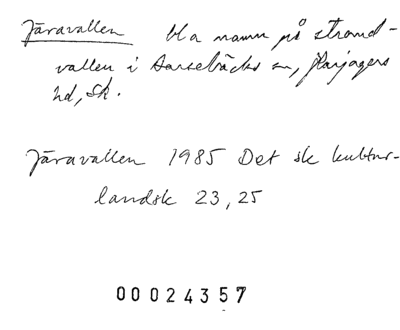 Järavallen Bl a namn på strand-
vallen i Barsebäcks sn, Harjagers
hd, Sk.
Järavallen 1985 Det sk kultur-
landsk 23, 25
00024357